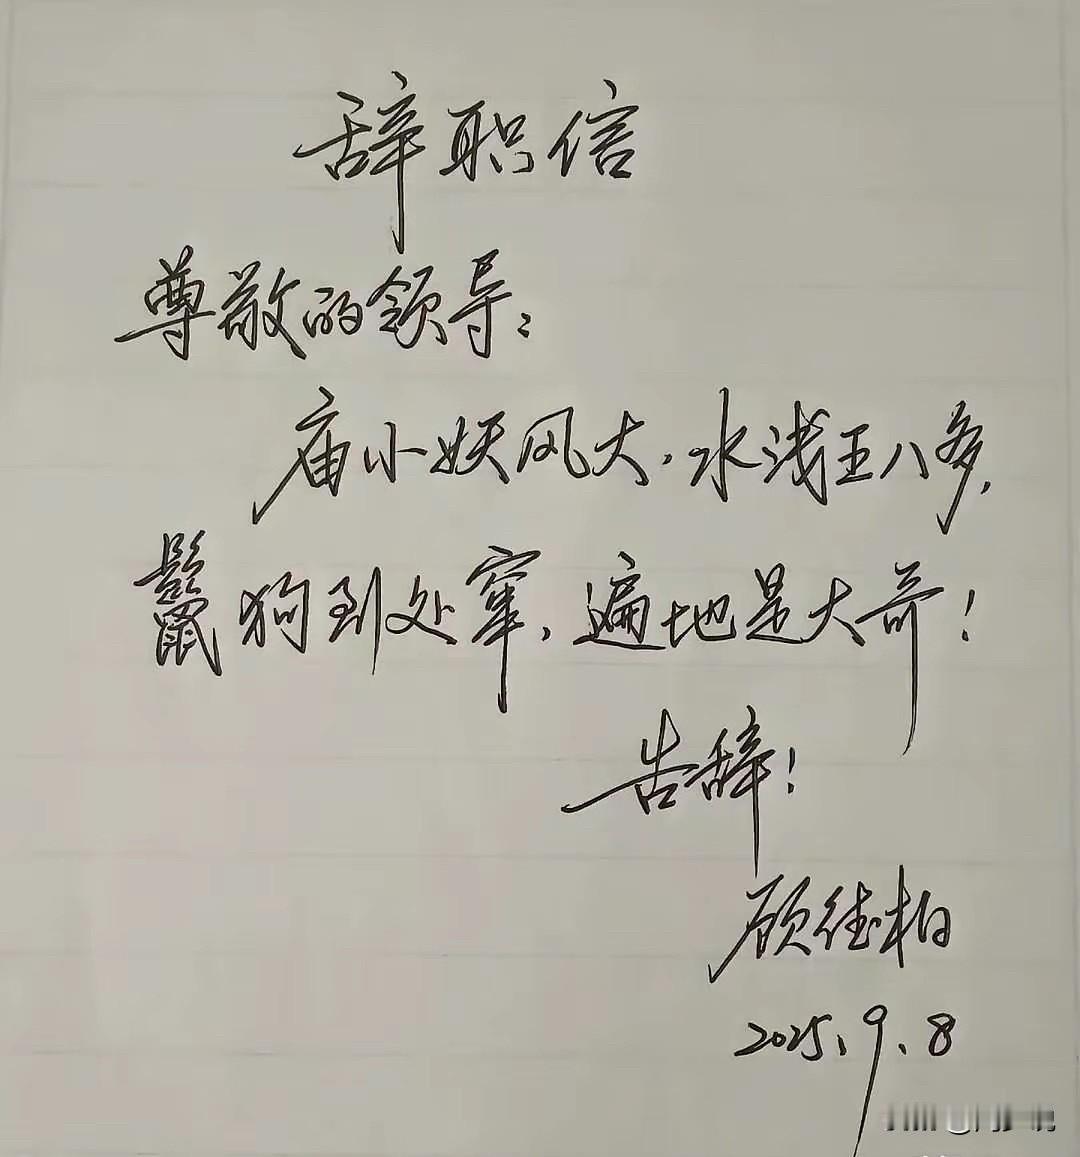 辞职信
尊敬的领导：
庙小妖风大，水浅王八多，
鬣狗到处窜，遍地是大哥！
告辞！
顾德柏
2025、9、8